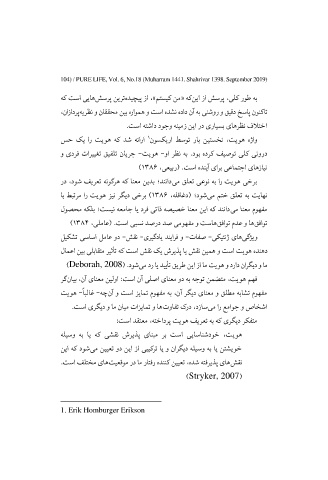 104) / PURE LIFE, Vol. 6, No.18 (Muharram 1441. Shahrivar 1398. September 2019)
به طور کلی، پرسش از این‌که «من کیستم»، از پیچیده‌ترین پرسش‌هایی است که
تاکنون پاسخ دقیق و روشنی به آن داده نشده است و همواره بین محققان و نظریه‌پردازان،
اختلاف نظرهای بسیاری در این زمینه وجود داشته است.
واژه هویت، نخستین بار توسط اریکسون۱ ارائه شد که هویت را یک حس
درونی کلی توصیف کرده بود. به نظر او- هویت- جریان تلفیق تغییرات فردی و
نیازهای اجتماعی برای آینده است. (ربیعی، ۱۳۸۶)
برخی هویت را به نوعی تعلق می‌دانند؛ بدین معنا که هرگونه تعریف شود، در
نهایت به تعلق ختم می‌شود؛ (دغاقله، ۱۳۸۶) برخی دیگر نیز هویت را مرتبط با
مفهوم معنا می‌دانند که این معنا خصیصه ذاتی فرد یا جامعه نیست؛ بلکه محصول
توافق‌ها و عدم توافق‌هاست و مفهومی صد درصد نسبی است. (عاملی، ۱۳۸۴)
ویژگی‌های ژنتیکی- صفات- و فرایند یادگیری- نقش- دو عامل اساسی تشکیل
دهنده هویت است و همین نقش یا پذیرش یک نقش است که تأثیر متقابلی بین اعمال
ما و دیگران دارد و هویت ما از این طریق تأیید یا رد می‌شود. (Deborah, 2008)
فهم هویت، متضمن توجه به دو معنای اصلی آن است: اولین معنای آن، بیان‌گر
مفهوم تشابه مطلق و معنای دیگر آن، به مفهوم تمایز است و آن‌چه- غالباً- هویت
اشخاص و جوامع را می‌سازد، درک تفاوت‌ها و تمایزات میان ما و دیگری است.
متفکر دیگری که به تعریف هویت پرداخته، معتقد است:
هویت، خودشناسایی است بر مبنای پذیرش نقشی که یا به وسیله
خویشتن یا به وسیله دیگران و یا ترکیبی از این دو تعیین می‌شود که این
نقش‌های پذیرفته شده، تعیین کننده رفتار ما در موقعیت‌های مختلف است.
(Stryker, 2007)
1. Erik Homburger Erikson